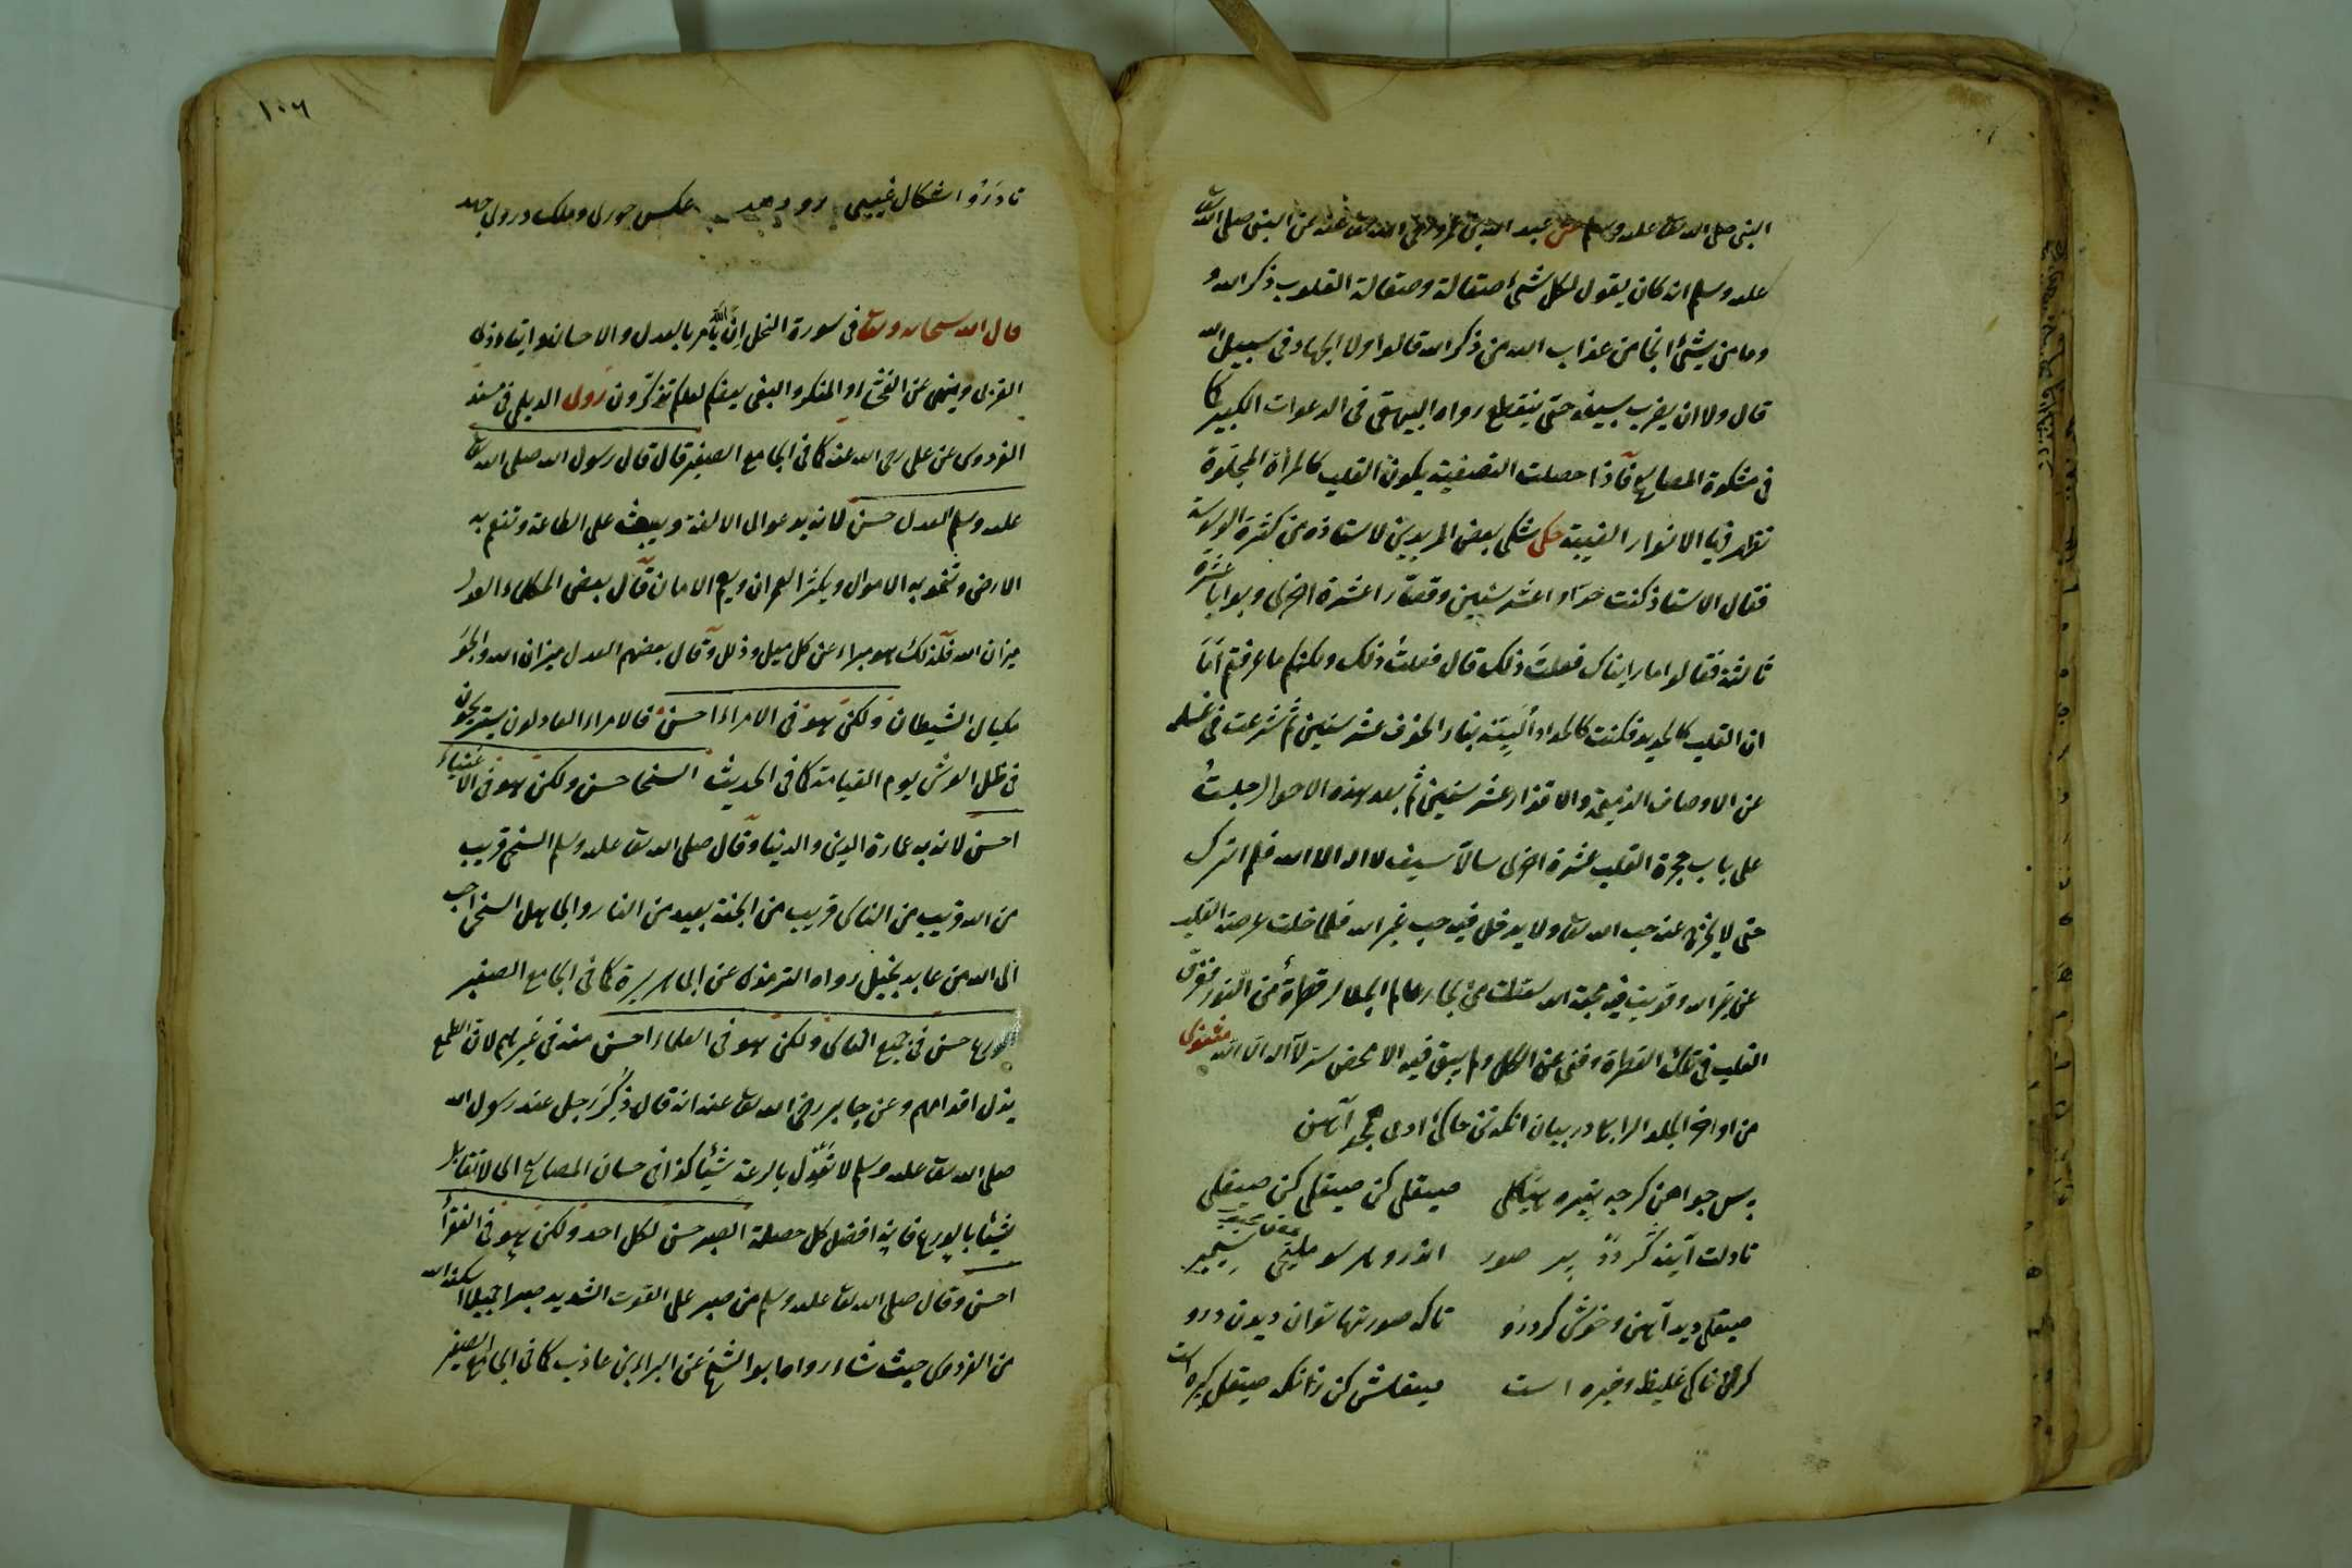 النبى صلى الله تعالى عليه وسلم عن عبد الله بن عمر رضى الله تعالى عنه عن النبى صلى الله تعالى
عليه وسلم انه كان يقول لكل شئ صقالة وصقالة القلوب ذكر الله و
وما من شئ انجا من عذاب الله من ذكر الله قالوا ولا الجهاد فى سبيل الله
قال ولا ان يضرب بسيفه حتى ينقطع رواه البيهقى فى الدعوات الكبير كا
فى مشكوة المصابيح فاذا حصلت التصفية يكون القلب كالمرأة المجلوة
تظهر فيها الانوار الغيبية حكى شكى بعض المريدين لاستاذه من كثرة الوسوسة
فقال الاستاذ كنت حدادا عشر سنين وقصارا عشرة اخرى وبوابا عشرة
ثالثة فقالوا ما رايناك فعلت ذلك قال فعلت ذلك ولكنكم ما عرفتم اما
ان القلب كالحديد فكنت كالحداد الينته بنار الخوف عشر سنين ثم شرعت فى غسله
عن الاوصاف الذميمة والاقذار عشر سنين ثم بعد هذه الاحوال جلست
على باب حجرة القلب عشرة اخرى سالا سيف لا اله الا الله فلم اترك
حتى لا يخرج عنه حب الله تعالى ولا يدخل فيه حب غير الله فلما خلت عرصة القلب
عن غير الله وقويت فيه محبة الله سقطت من بحار عالم الجلال قطرة من النور فغرق
القلب فى تلك القطرة وفنى عن الكل ولم يبق فيه الا محض سر لا اله الا الله مثنوى
من اواخر الجلد الرابع در بيان انكه تن خاكئ ادمى همچو آهن
پس چو اهن گرچه تيره هيكلى صيقلى كن صيقلى كن صيقلى
تا دلت آينه گردد پر صور اندرو هر سو مليحى سيمبر
صيقلى ديد آهن وخوش كرد رو تا كه صورتها توان ديدن درو
گر تن خاكى غليظ وتيره است صيقلش كن زانكه صيقل گيره است
١٠٦
تا درو اشكال غيبى رو دهد عكس حورى وملك در وى جهد
قال الله سبحانه وتعالى فى سورة النحل ان الله يأمر بالعدل والاحسان وايتاء ذى
القربى وينهى عن الفحشاء والمنكر والبغى يعظكم لعلكم تذكرون روى الديلمى فى مسند
الفردوس عن على رضى الله عنه كما فى الجامع الصغير قال قال رسول الله صلى الله تعالى
عليه وسلم العدل حسن لانه يدعو الى الالفة ويبعث على الطاعة وتنعم به
الارض وتنمو به الاموال ويكثر العمران ويعم الامان قال بعض الحكماء العدل
ميزان الله فلذلك هو مبراء عن كل ميل وذلل وقال بعضهم العدل ميزان الله والجور
مكيال الشيطان ولكن هو فى الامراء احسن فالامراء العادلون يستريحون
فى ظل العرش يوم القيامة كما فى الحديث السخا حسن ولكن هو فى الاغنياء
احسن لانه به عمارة الدين والدنيا وقال صلى الله تعالى عليه وسلم السخى قريب
من الله قريب من الناس قريب من الجنة بعيد من النار والجاهل السخى احب
الى الله من عابد بخيل رواه الترمذى عن ابى هريرة كما فى الجامع الصغير
الورع حسن فى جميع الناس ولكن هو فى العلماء احسن منه فى غيرهم لان الطمع
يذل اقدامهم وعن جابر رضى الله تعالى عنه انه قال ذكر رجل عند رسول الله
صلى الله تعالى عليه وسلم لا تعدل بالرعة شيئا كذا فى حسان المصابيح اى لا تقابل
شيئا بالورع فانه افضل كل خصلة الصبر حسن لكل احد ولكن هو فى الفقراء
احسن وقال صلى الله تعالى عليه وسلم من صبر على القوت الشديد صبرا جميلا اسكنه الله
من الفردوس حيث شاء رواه ابو الشيخ عن البراء بن عازب كما فى الجامع الصغير